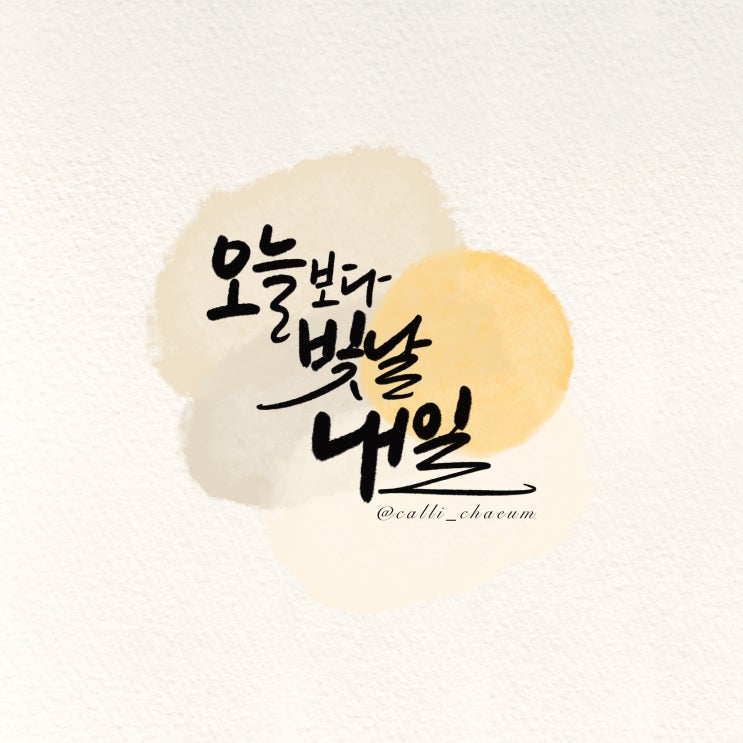 오늘보다
빛날
내일
@calli_chaeum